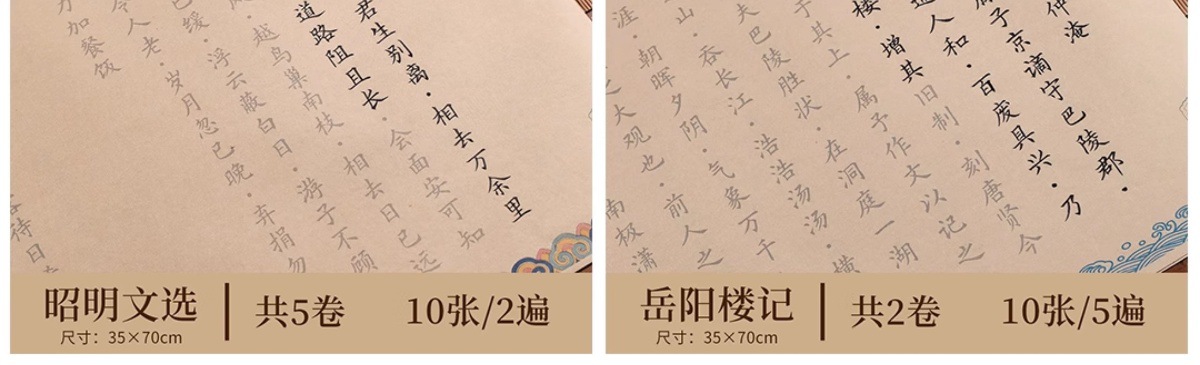 君生别离·相去万余里
道路阻且长·会面安可知
越鸟巢南枝·相去日已远
缓·浮云蔽白日·游子不顾
令人老·岁月忽已晚·弃捐勿
加餐饭
待日
昭明文选
尺寸：35×70cm
共5卷
10张/2遍
仲淹
子京谪守巴陵郡·
人和·百废具兴·乃
楼·增其旧制·刻唐贤今
于其上·属予作文以记之
夫巴陵胜状·在洞庭一湖
山·吞长江·浩浩汤汤·横
涯·朝晖夕阴·气象万千
之大观也·前人之
南极潇
岳阳楼记
尺寸：35×70cm
共2卷
10张/5遍